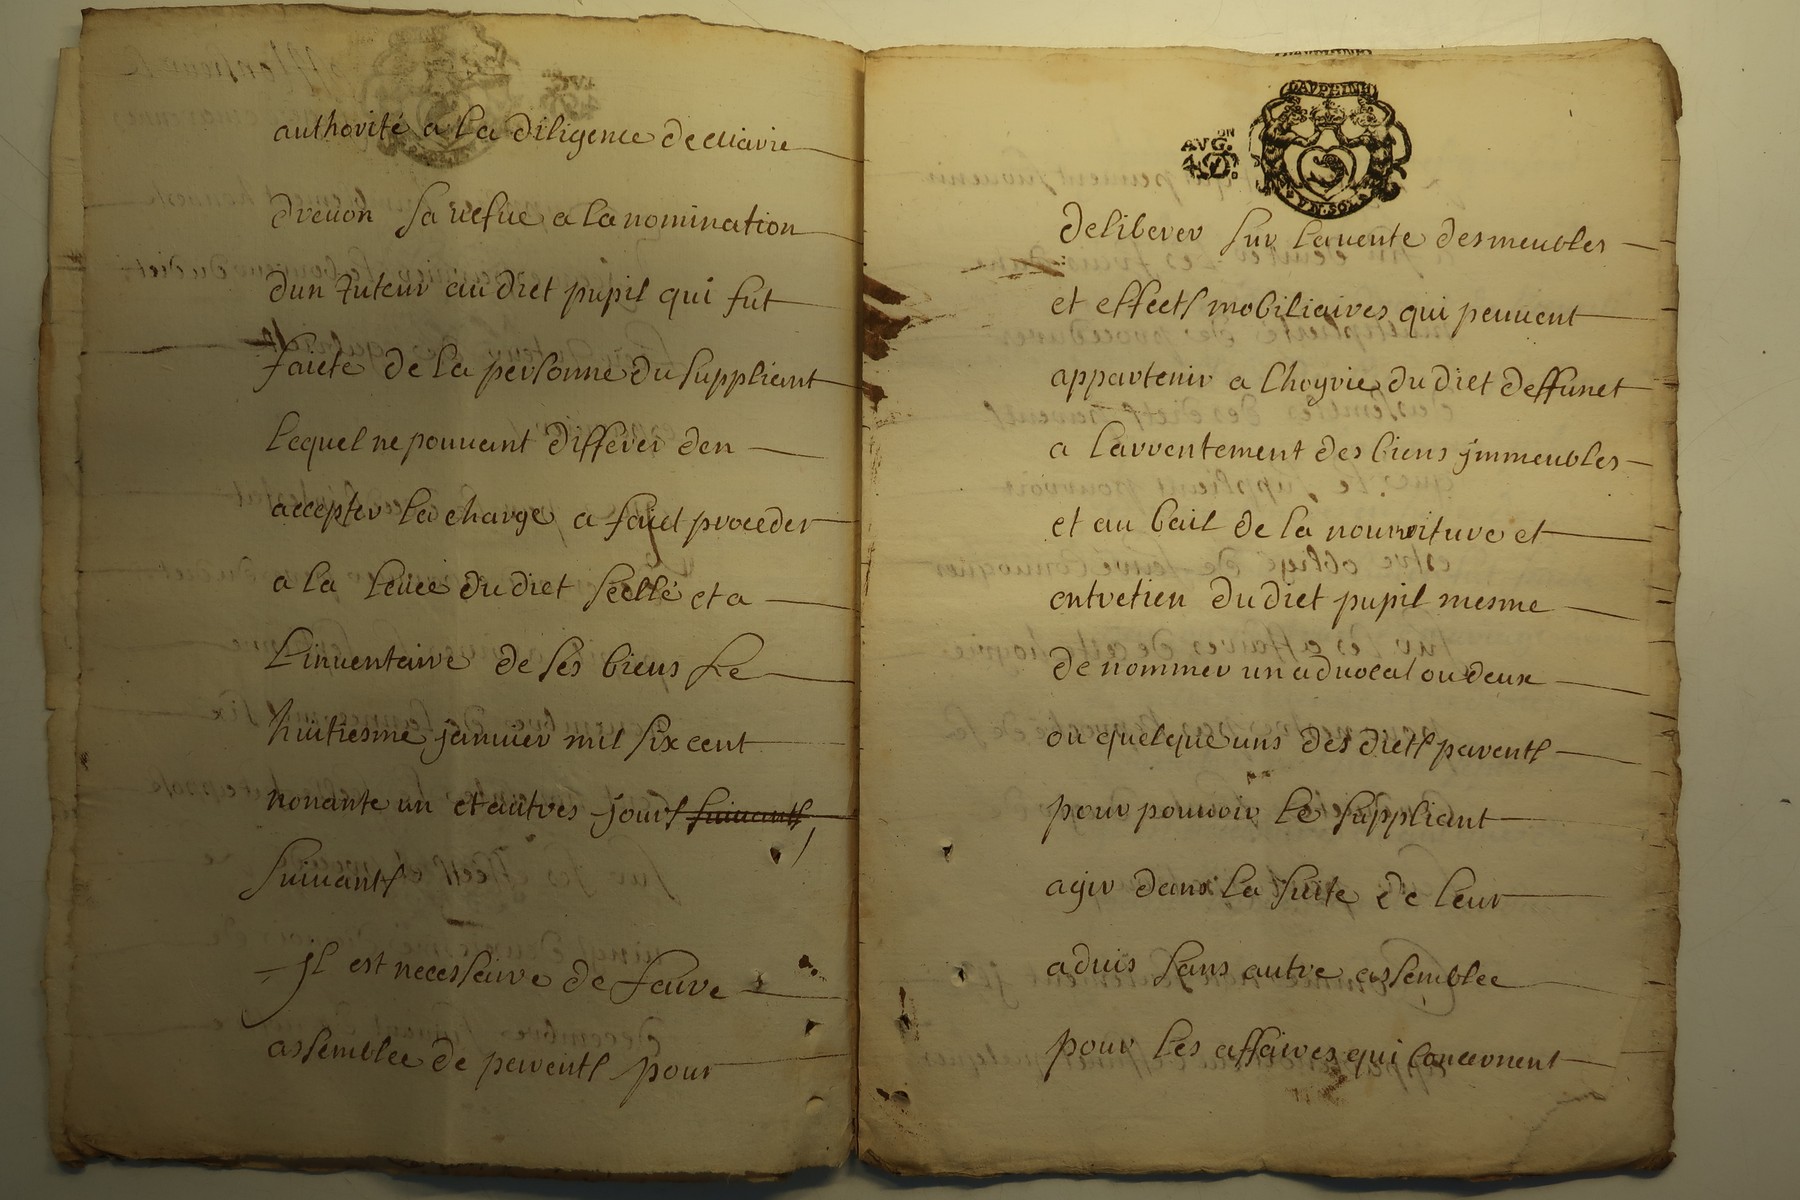 authorité a La diligence de Marie
drevon sa vefue a la nomination
dun tuteur au dict pupil qui fut
faicte de la personne du suppliant
Lequel ne pouuant differer den
accepter La charge a faict proceder
a la Leuée du dict scellé et a
Linuentaire de ses biens Le
huitiesme januier mil six cent
nonante un et autres jours suiuants
suiuants
jl est necessaire de faire
assemblee de parents pour
DAUPHINE
AVG.ON
UN.SOLS
deliberer sur La vente des meubles
et effects mobiliaires qui peuuent
appartenir a lhoyrie du dict deffunct
a Larrentement des biens jmmeubles
et au bail de la nourriture et
entretien du dict pupil mesme
de nommer un aduocat ou deux
ou quelque uns des dicts parents
pour pouuoir Le suppliant
agir dans La suite de leur
aduis sans autre assemblee
pour Les affaires qui concernent